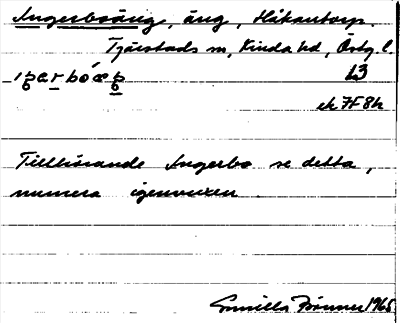 Ingerboäng, äng, Håkantorp.
Tjärstads sn, Kinda hd, Östg. l.
13
ek 7F 8h
Tillhörande Ingerbo se detta,
numera igenvuxen.
Gunilla 1965